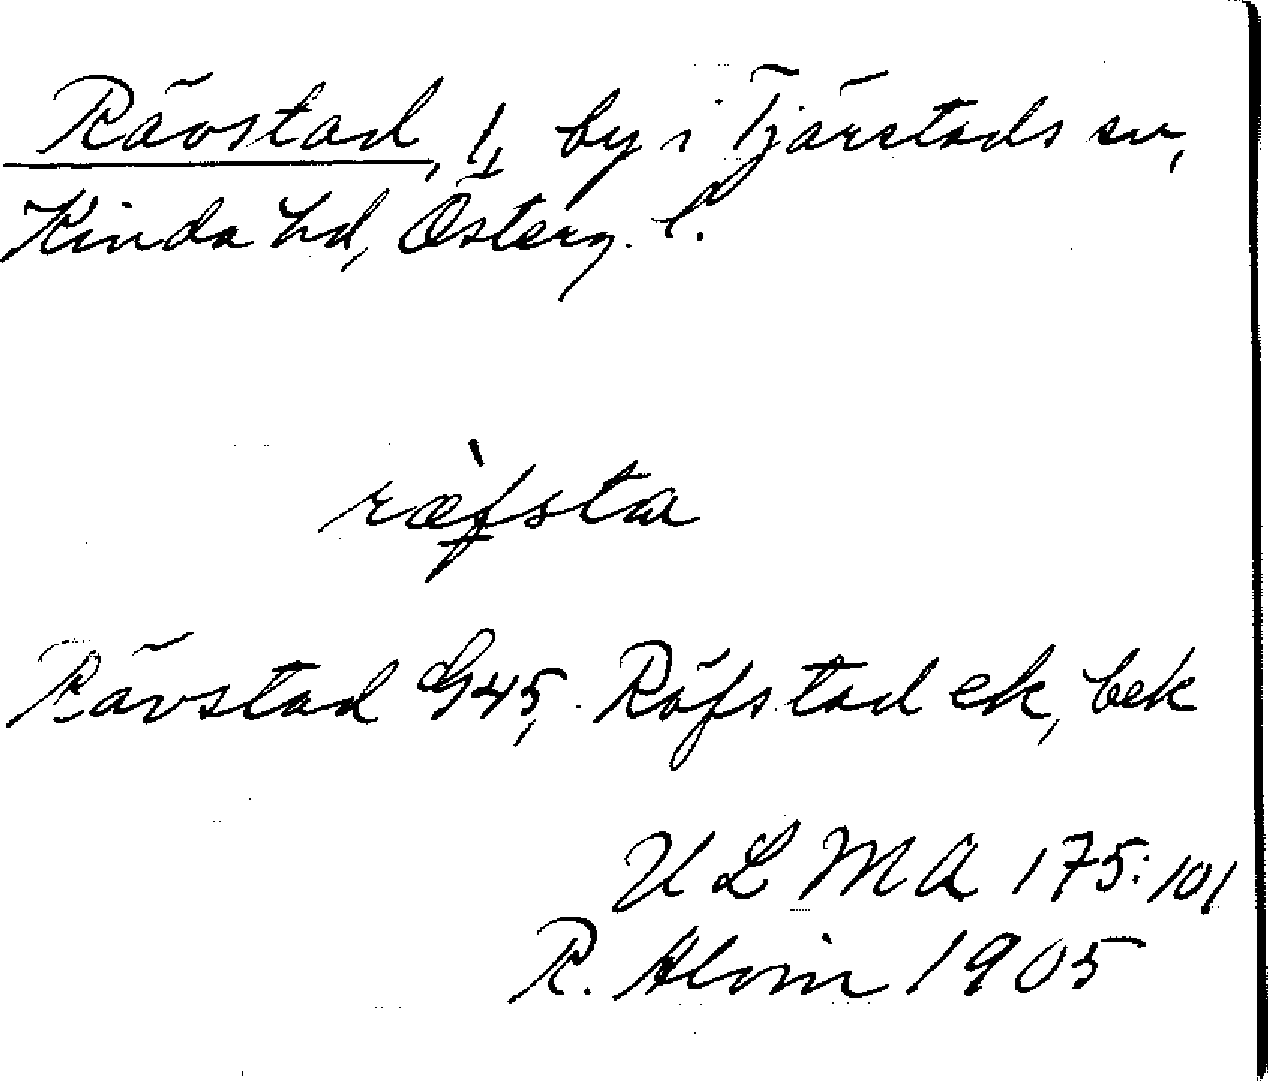 Rävstad, 1/1, by i Tjärstads sn,
Kinda hd, Österg. l.
ræ̀fsta
Rävstad G45, Räfstad ek, bek
ULMA 175:101
R. Alvin 1905